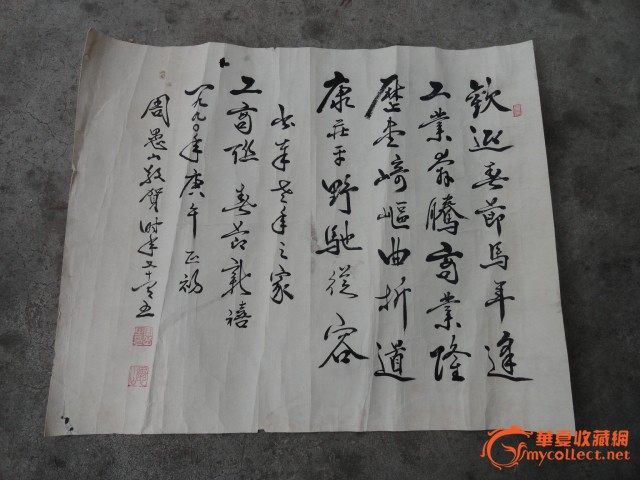 歡迎春節馬年逢
工業奔騰商業隆
歷盡崎嶇曲折道
康莊平野馳從容
书奉老年之家
工商联 春节新禧
一九九〇年庚午正初
周愚山敬贺时年七十有五
華夏收藏網
mycollect.net